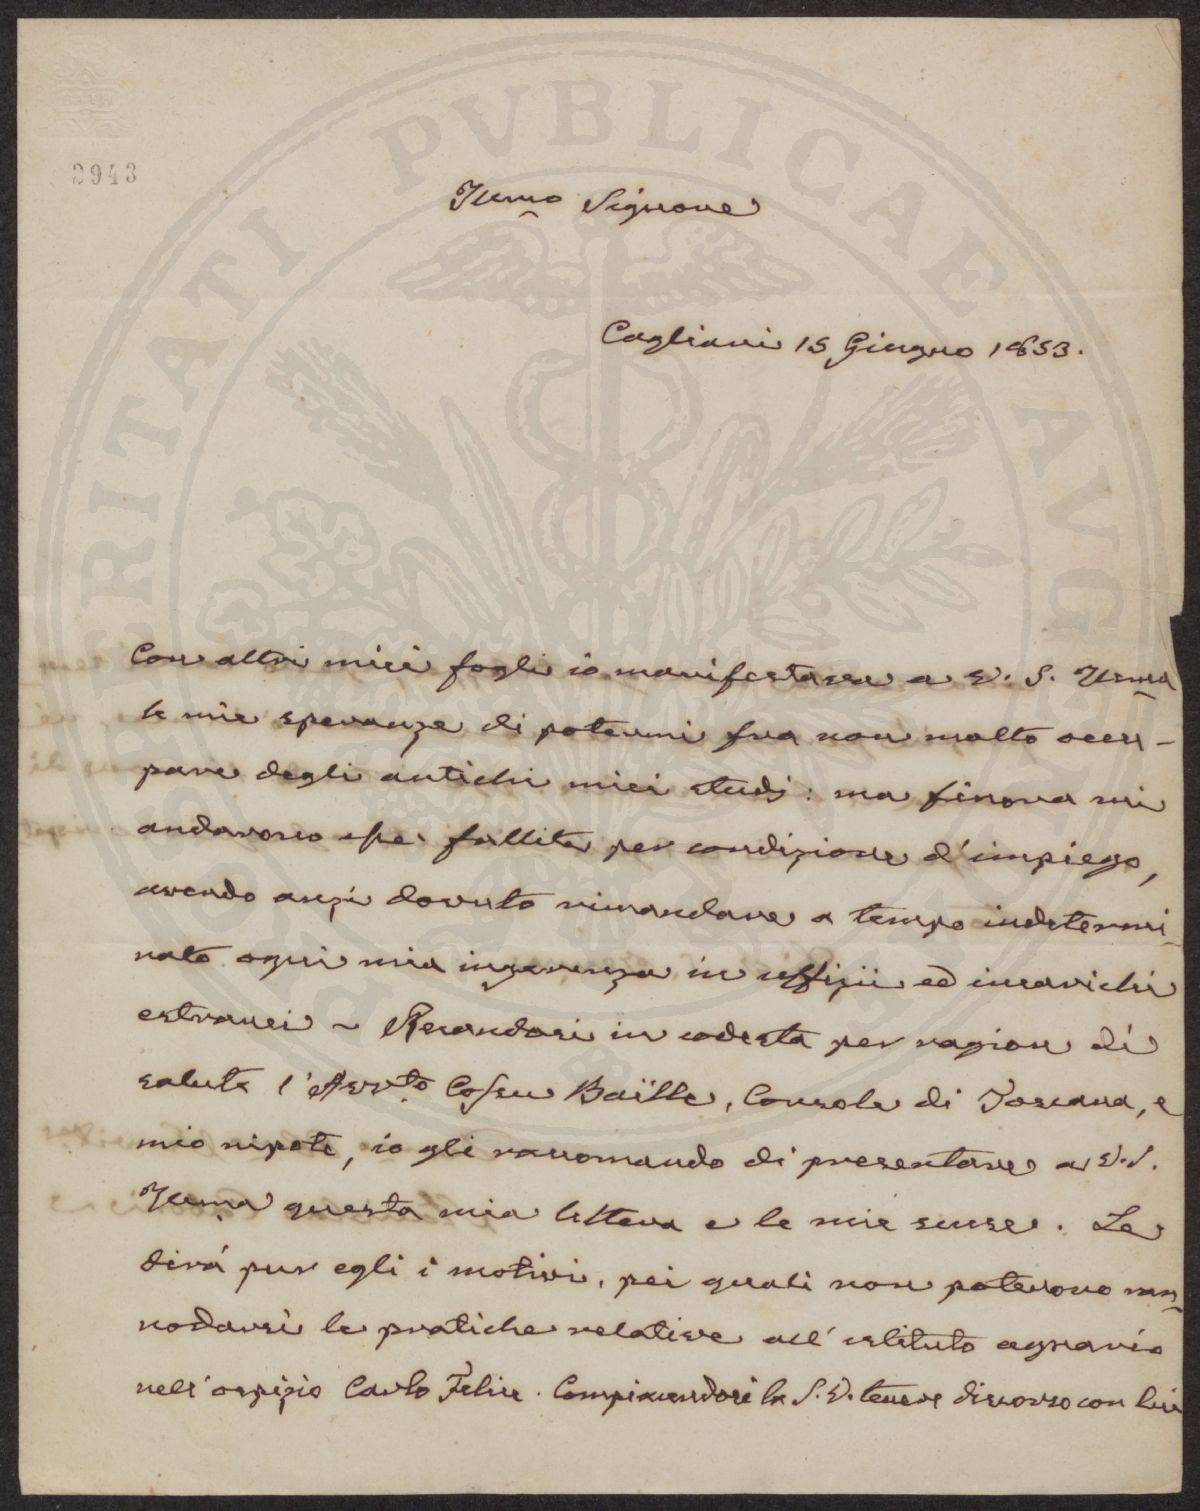 2943
Illmo Signore
Cagliari 15 Giugno 1853.
Con altri miei fogli io manifestava a V. S. Illma
le mie speranze di potermi fra non molto occu-
pare degli antichi miei studj: ma finora mi
andarono esse fallite per condizione d'impiego,
avendo anzi dovuto rimandare a tempo indetermi-
nato ogni mia ingerenza in uffizii ed incarichi
estranei ~ Recandosi in codesta per ragion di
salute l'Avvto Cossu Baïlle, Console di Toscana, e
mio nipote, io gli raccomando di presentare a V. S.
Illma questa mia lettera e le mie scuse. Le
dirà pur egli i motivi, pei quali non poterono ran-
nodarsi le pratiche relative all'istituto agrario
nell'ospizio Carlo Felice. Compiacendosi la S. V. tenere discorso con lui